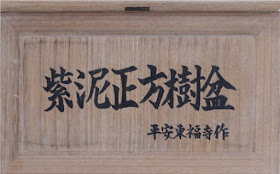 紫泥正方樹盆
平安東福寺作